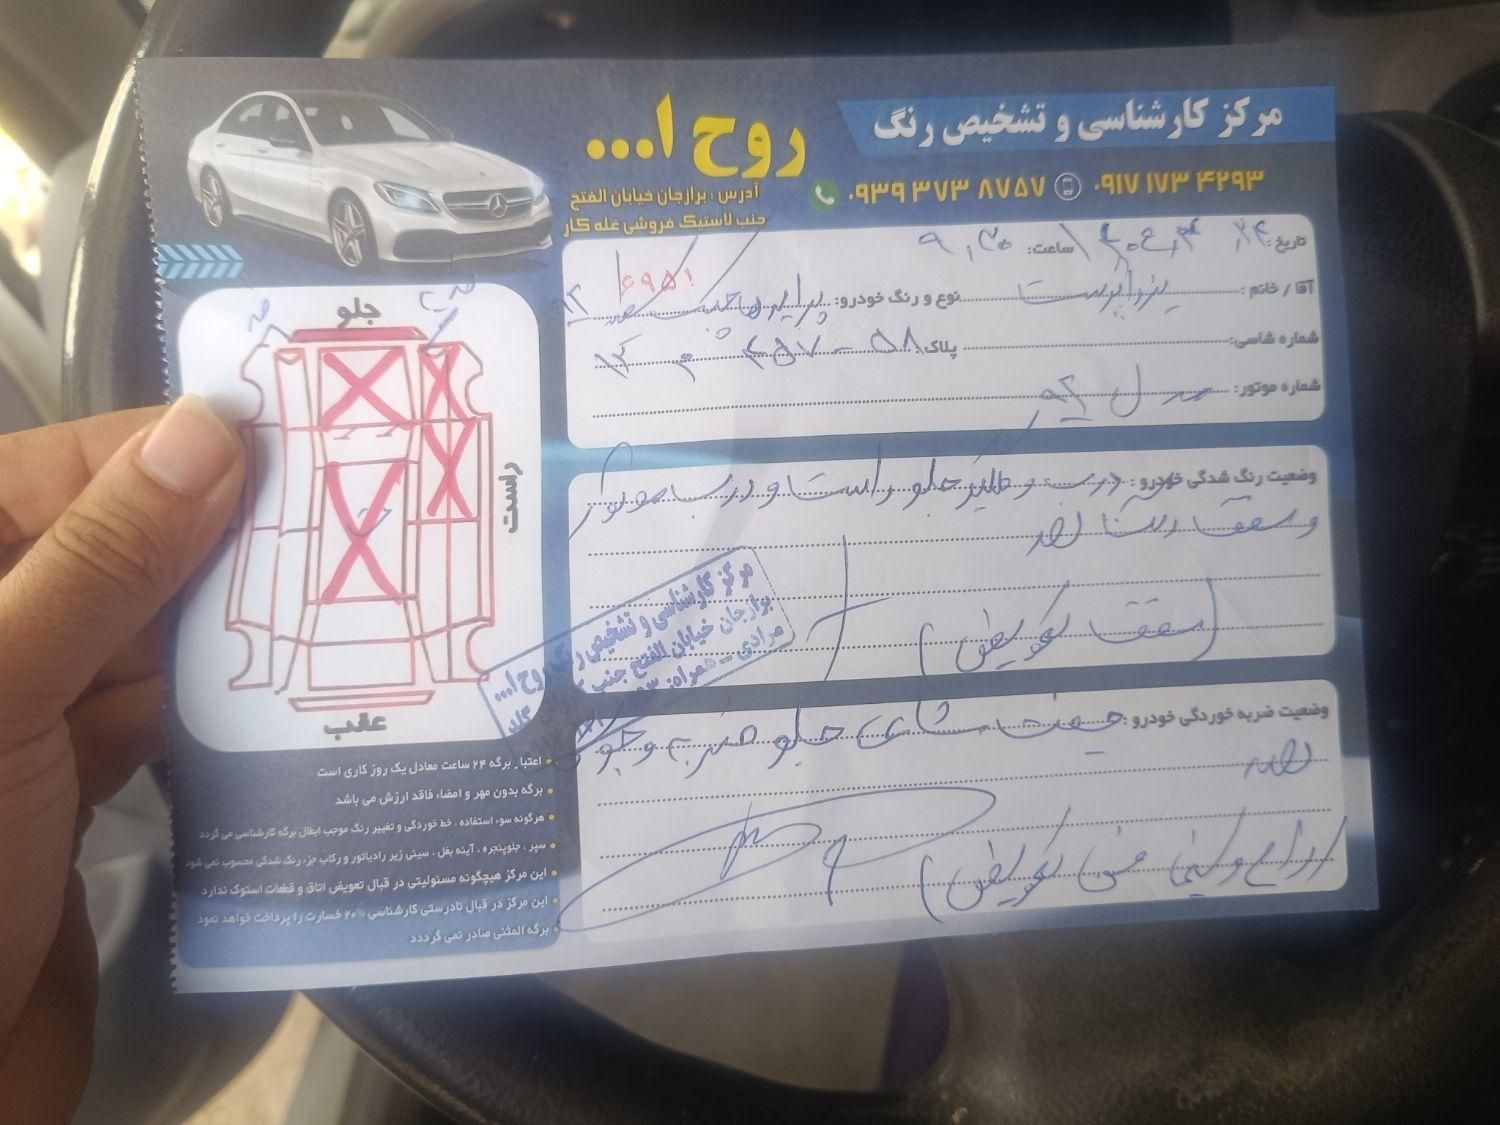 مرکز کارشناسی و تشخیص رنگ
روح ا...
۰۹۱۷ ۱۷۳ ۴۲۹۳
۰۹۳۹ ۳۷۳ ۸۷۵۷
آدرس : برازجان خیابان الفتح
جنب لاستیک فروشی غله کار
تاریخ :
ساعت: ۹,۳۰
آقا / خانم :
نوع و رنگ خودرو: پراید هاچبک سفید ۹۲
۶۹۵۱
شماره شاسی:
پلاک ۵۸ - ۴۵۷ م ۱۲
شماره موتور: مدل ۹۲
وضعیت رنگ شدگی خودرو : درب و گلگیر جلو راست و درب موتور
و سقف رنگ شد
( سقف تعویض )
وضعیت ضربه خوردگی خودرو : جفت شاسی جلو ضرب و جوش
شد
تعویض )
جلو
راست
عقب
مرکز کارشناسی و تشخیص رنگ روح ا...
برازجان خیابان الفتح جنب
مرادی - همراه:
اعتبار برگه ۲۴ ساعت معادل یک روز کاری است
برگه بدون مهر و امضاء فاقد ارزش می باشد
هرگونه سوء استفاده ، خط خوردگی و تغییر رنگ موجب ابطال برگه کارشناسی می گردد
سپر ، جلوپنجره ، آینه بغل ، سینی زیر رادیاتور و رکاب جزء رنگ شدگی محسوب نمی شود
این مرکز هیچگونه مسئولیتی در قبال تعویض اتاق و قطعات استوک ندارد
این مرکز در قبال نادرستی کارشناسی ۲۰% خسارت را پرداخت خواهد نمود
برگه المثنی صادر نمی گرددد